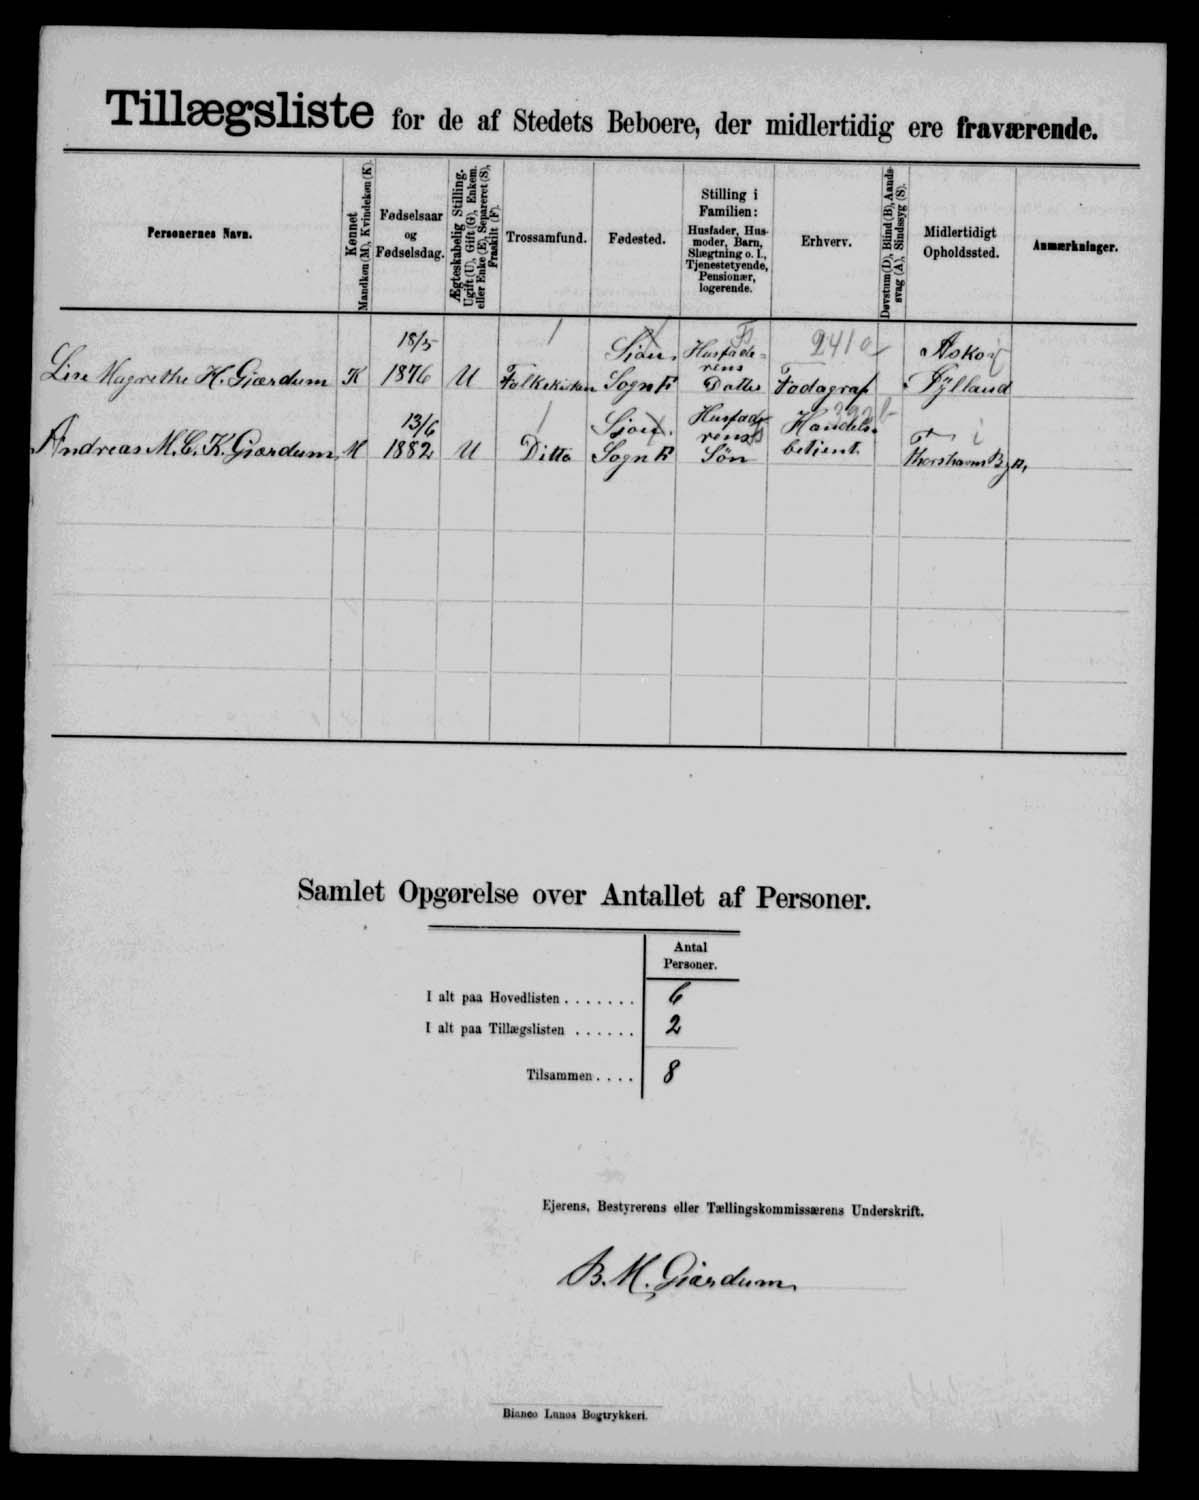 Tillægsliste for de af Stedets Beboere, der midlertidig ere fraværende.
Personernes Navn.
Kønnet
Mandkøn (M), Kvindekøn (K).
Fødselsaar
og
Fødselsdag.
Ægteskabelig Stilling.
Ugift (U), Gift (G), Enkem.
eller Enke (E), Separeret (S),
Fraskilt (F).
Trossamfund.
Fødested.
Stilling i
Familien:
Husfader, Hus-
moder, Barn,
Slægtning o. l.,
Tjenestetyende,
Pensionær,
logerende.
Erhverv.
Døvstum (D), Blind (B), Aands-
svag (A), Sindssyg (S).
Midlertidigt
Opholdssted.
Anmærkninger.
Lise Magrethe H. Giærdum
K
18/5
1876
U
Folkekirken
Sjov.
Sogn F
Husfade-
rens
Datter
2410
Fodagraf
Askov
Jylland
Andreas M. C. K. Giærdum
M
13/6
1882
U
Ditto
Sjov.
Sogn F
Husfade
rens
Søn
Handels-
betjent
Thorshavns By
Samlet Opgørelse over Antallet af Personer.
Antal
Personer.
I alt paa Hovedlisten . . . . . . . 6
I alt paa Tillægslisten . . . . . . 2
Tilsammen . . . . 8
Ejerens, Bestyrerens eller Tællingskommissærens Underskrift.
B. M. Giærdum
Bianco Lunos Bogtrykkeri.